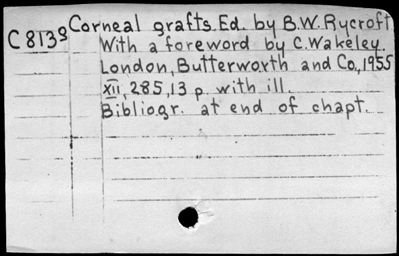 C8139 Corneal grafts. Ed. by B.W. Rycroft
With a foreword by C. Wakeley.
London, Butterworth and Co., 1955
XII, 285, 13 p. with ill.
Bibliogr. at end of chapt.